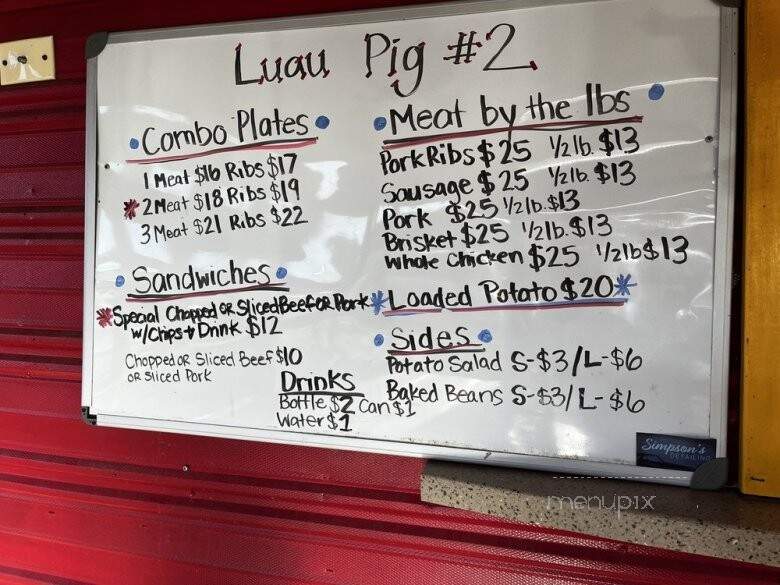 Luau Pig #2
Combo Plates
1 Meat $16 Ribs $17
2 Meat $18 Ribs $19
3 Meat $21 Ribs $22
Sandwiches
Special Chopped or Sliced Beef or Pork
w/Chips + Drink $12
Chopped or Sliced Beef $10
or Sliced Pork
Drinks
Bottle $2 Can $1
Water $1
Meat by the lbs
Pork Ribs $25 1/2 lb. $13
Sausage $25 1/2 lb. $13
Pork $25 1/2 lb. $13
Brisket $25 1/2 lb. $13
Whole Chicken $25 1/2 lb $13
Loaded Potato $20
Sides
Potato Salad S-$3/L-$6
Baked Beans S-$3/L-$6
Simpson's
DETAILING
menupix